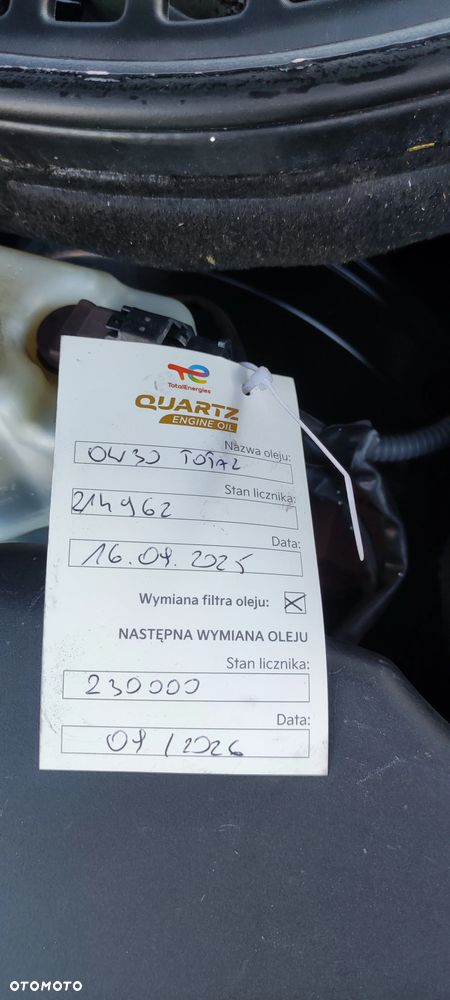 TotalEnergies
QUARTZ
ENGINE OIL
Nazwa oleju:
0W30 TOTAL
Stan licznika:
214962
Data:
16.09.2025
Wymiana filtra oleju:
NASTĘPNA WYMIANA OLEJU
Stan licznika:
230000
Data:
09/2026
OTOMOTO